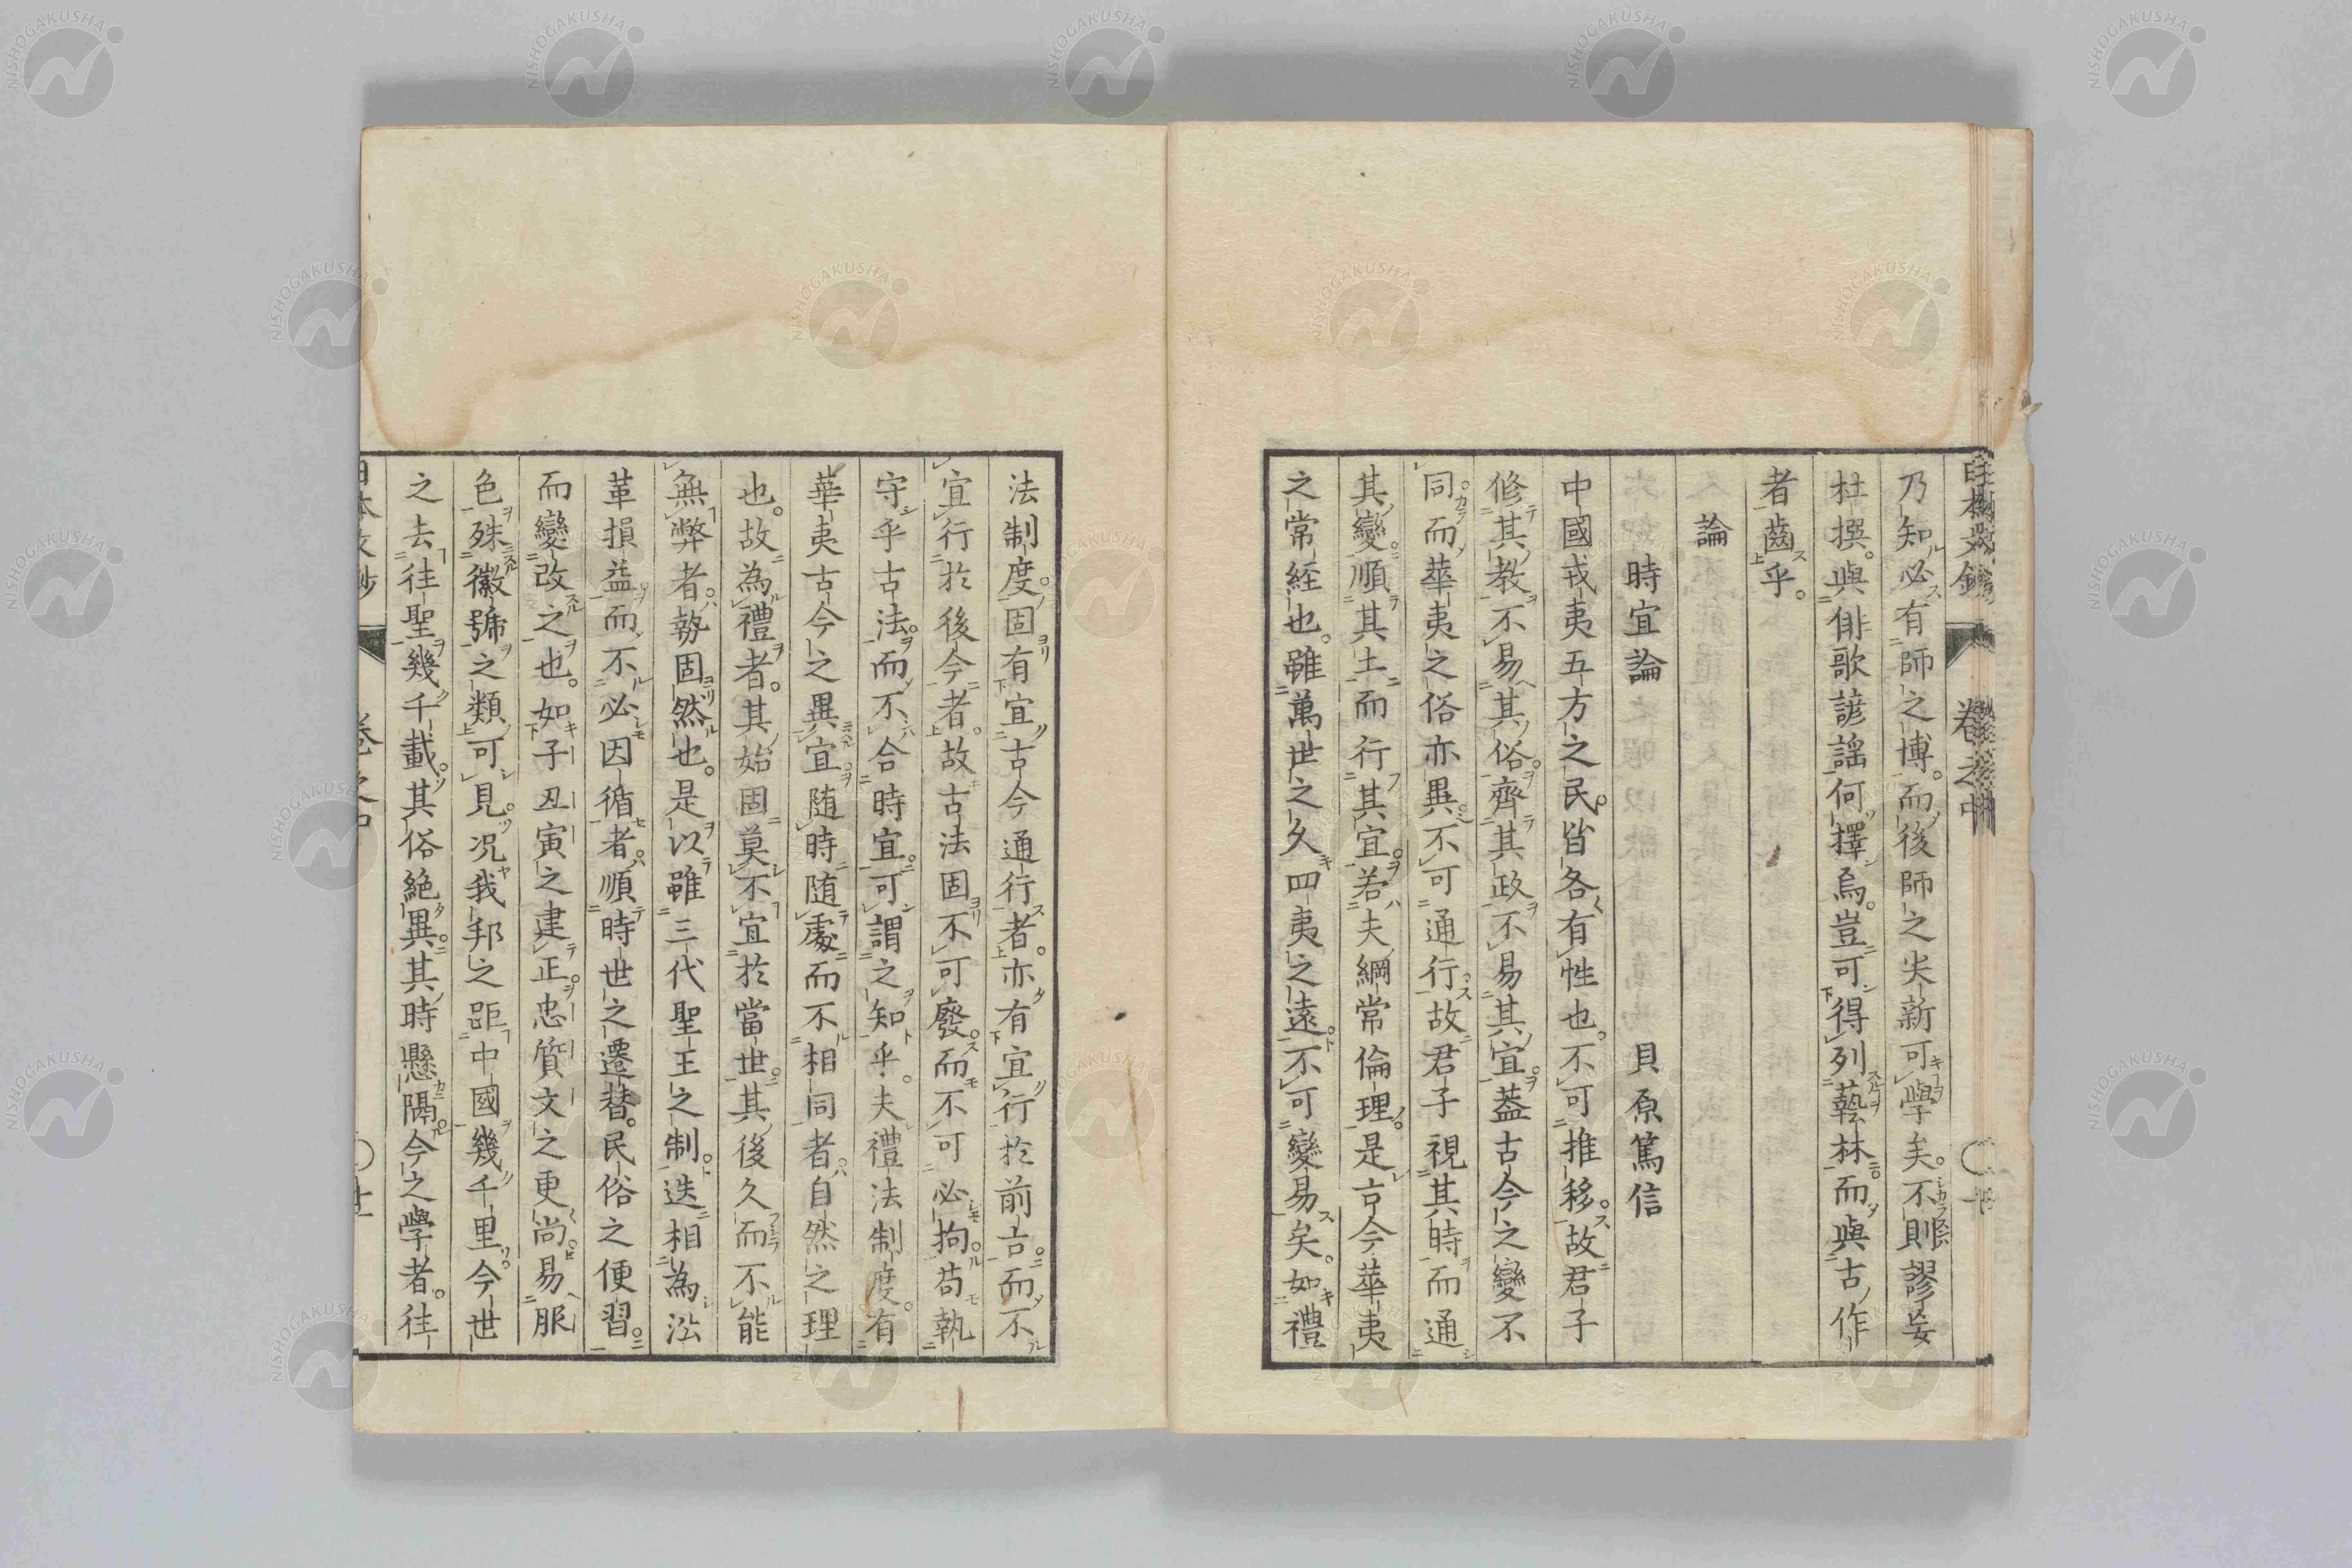 乃知必有師之博。而後師之失新可學矣。不則謬妄
杜撰。與俳歌諺謠何擇焉。豈可得列藝林而與古作
者齒乎。
論
時宜論 貝原篤信
中國戎夷五方之民。皆各有性也。不可推移。故君子
修其教不易其俗。齊其政不易其宜。蓋古今之變不
同。而華夷之俗亦異。不可通行。故君子視其時而通
其變。順其土而行其宜。若夫綱常倫理。是古今華夷
之常経也。雖萬世之久四夷之遠。不可變易矣。如禮
法制度。固有宜古今通行者。亦有宜行於前古。而不
宜行於後今者。故古法固不可廢。而不可必拘。苟執
守乎古法。而不合時宜。可謂之知乎。夫禮法制度。有
華夷古今之異宜。随時随處而不相同者。自然之理
也。故為禮者。其始固莫不宜於當世。其後久而不能
無弊者。勢固然也。是以雖三代聖王之制。迭相為沿
革損益。而不必因循者。順時世之遷替。民俗之便習。
而變改之也。如子丑寅之建正。忠質文之更尚。易服
色殊徽號之類。可見。况我邦之距中國幾千里。今世
之去往聖幾千載。其俗絶異。其時懸隔。今之學者。往
卷之中
NISHOGAKUSHA